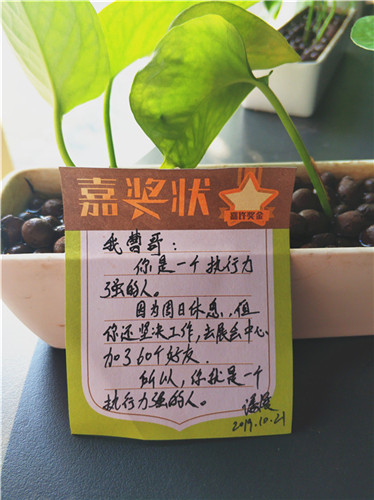 嘉奖状
颁奖金
我曹哥：
你是一个执行力
强的人。
因为周日休息，但
你还坚决工作，去展会中心
加了60个好友．
所以，你就是一个
执行力强的人。
2019.10.21